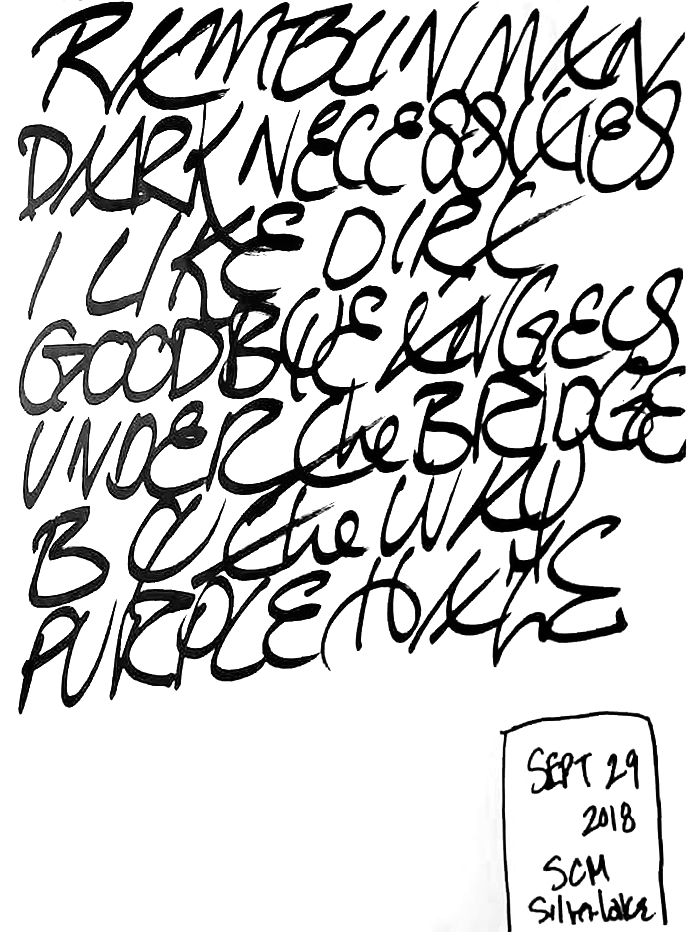 RAMBLIN MAN
DARK NECESSITIES
I LIKE DIRT
GOODBYE ANGELS
UNDER the BRIDGE
BY the WAY
PURPLE HAZE
SEPT 29
2018
SCM
Silverlake